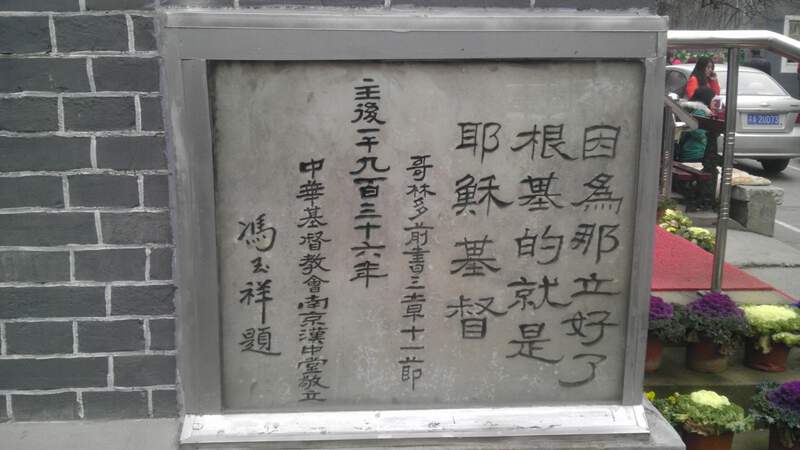 因為那立好了
根基的就是
耶穌基督
哥林多前書三章十一節
主後一千九百三十六年
中華基督教會南京漢中堂敬立
馮玉祥題